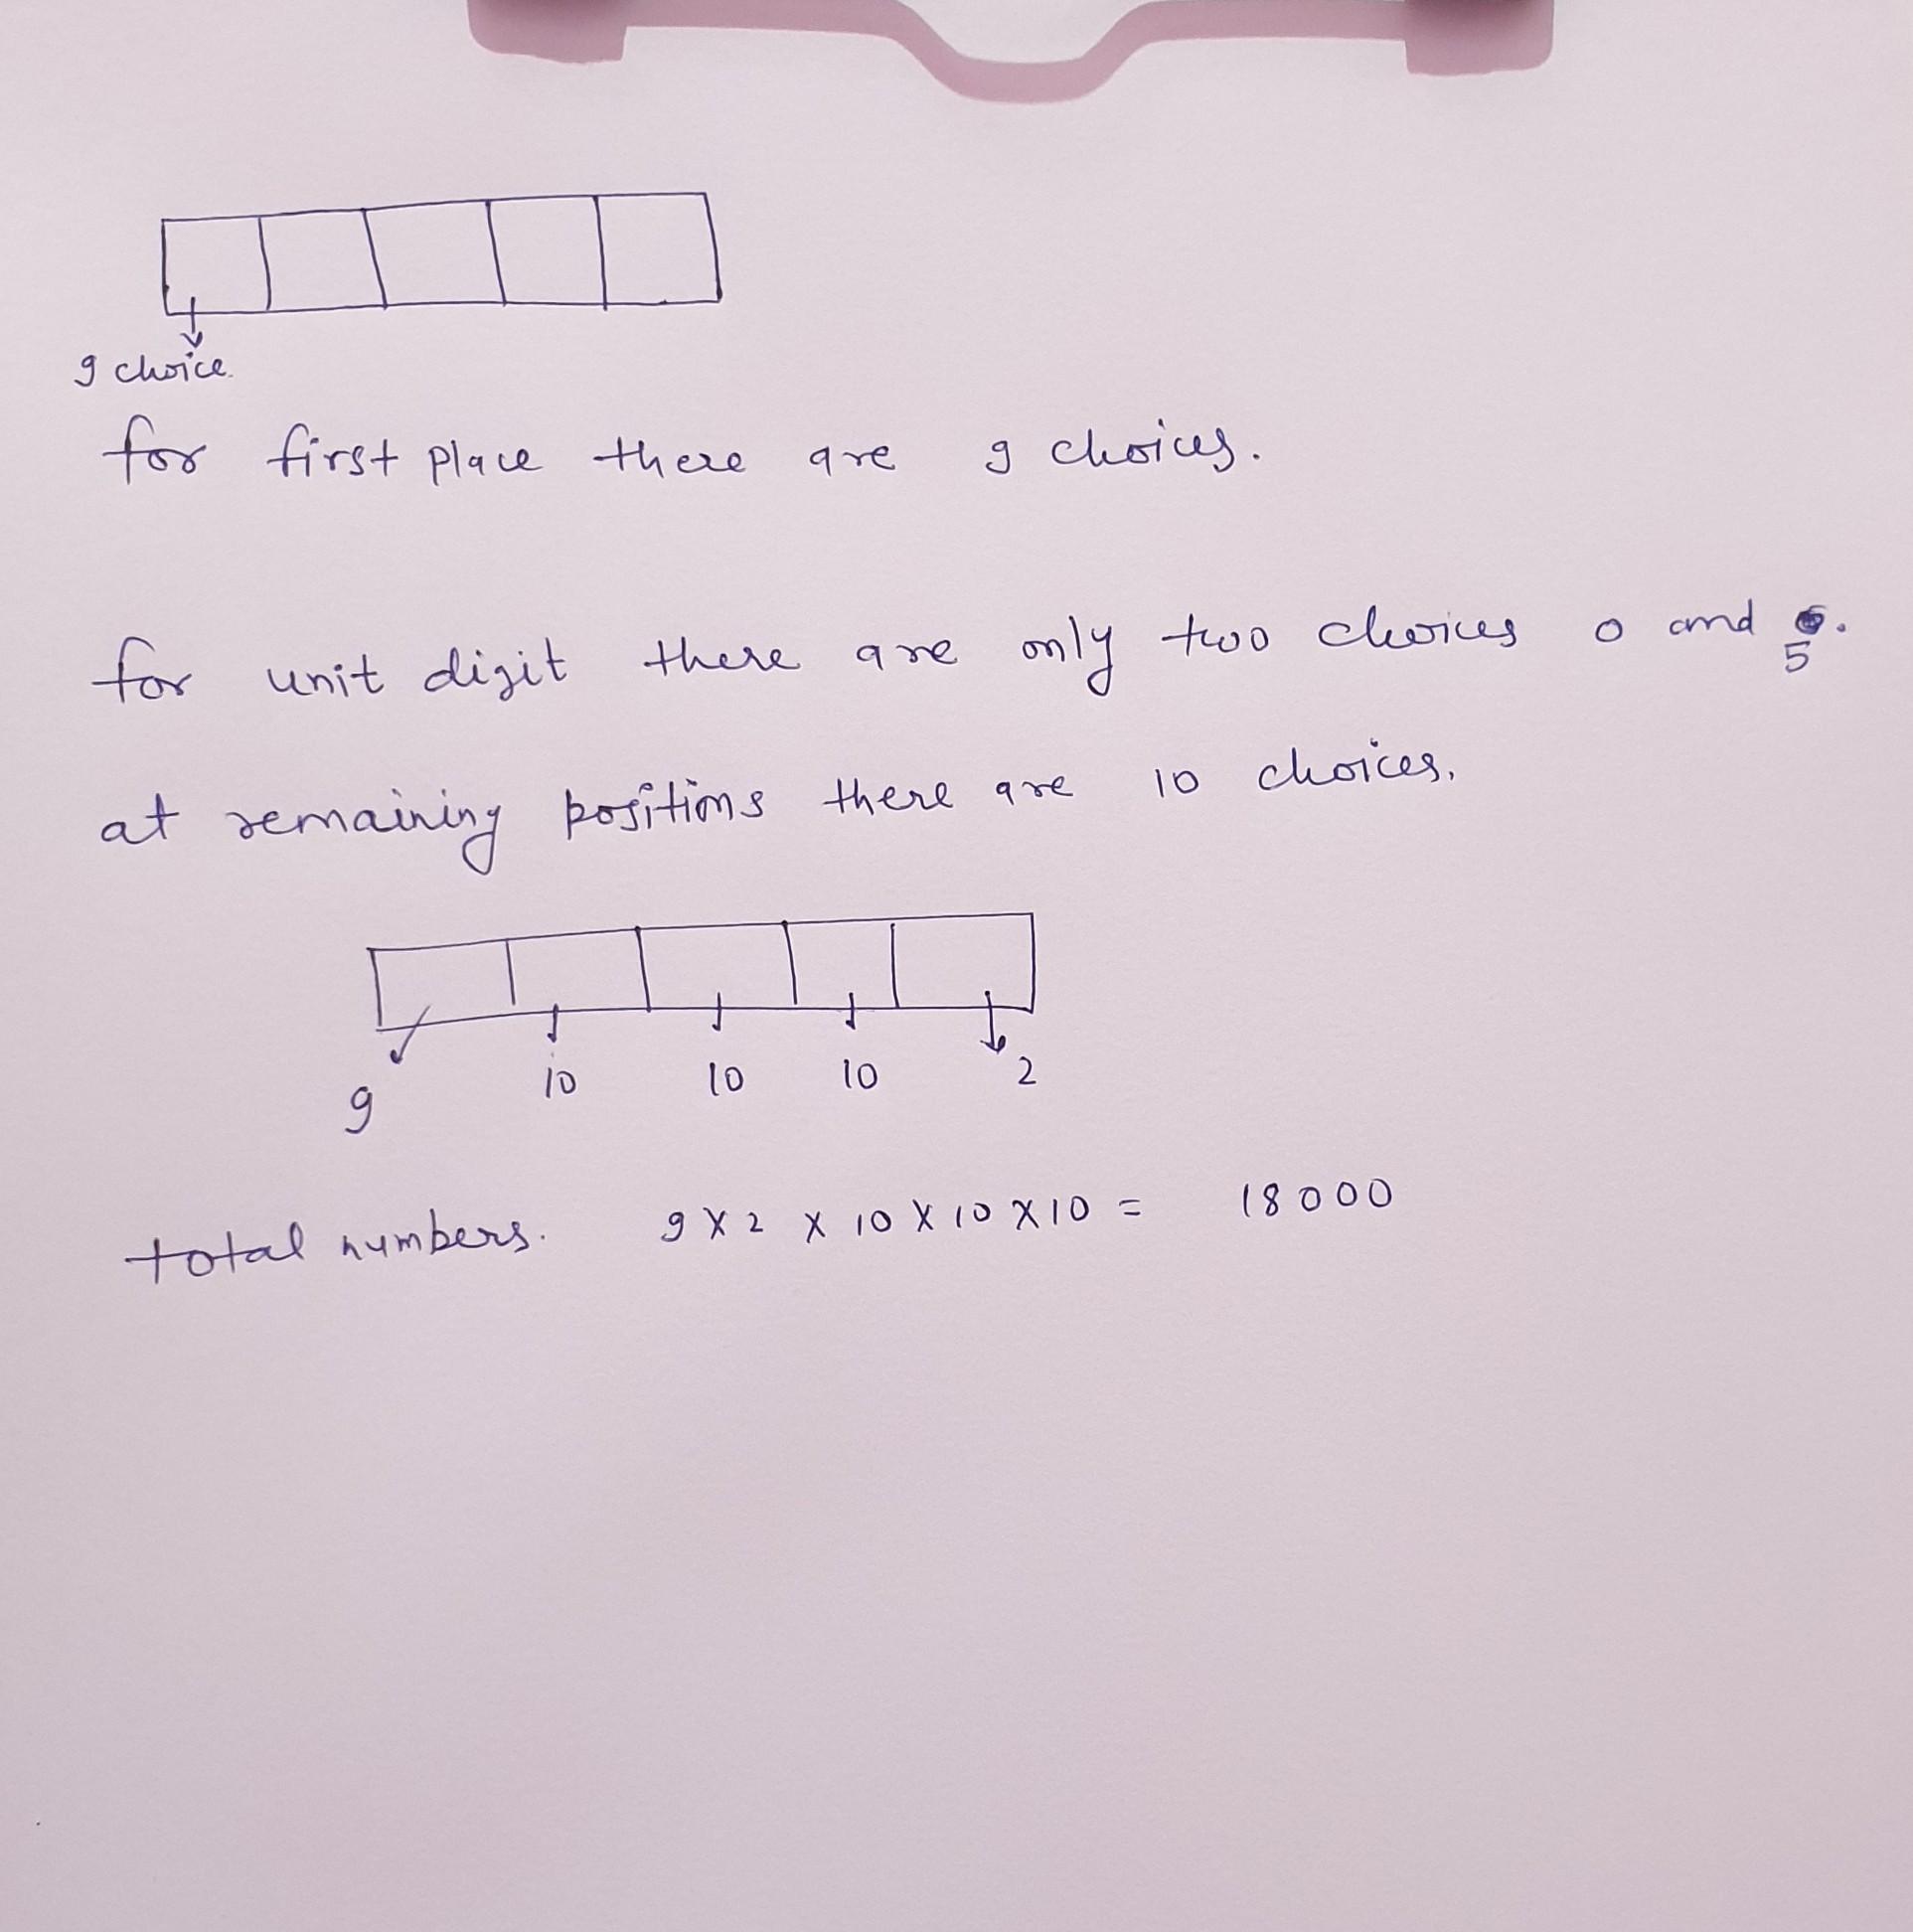 9 choice.
for first place there are 9 choices.
for unit digit there are only two choices 0 and 5.
at remaining positions there are 10 choices.
9 10 10 10 2
total numbers. 9 X 2 X 10 X 10 X 10 = 18000